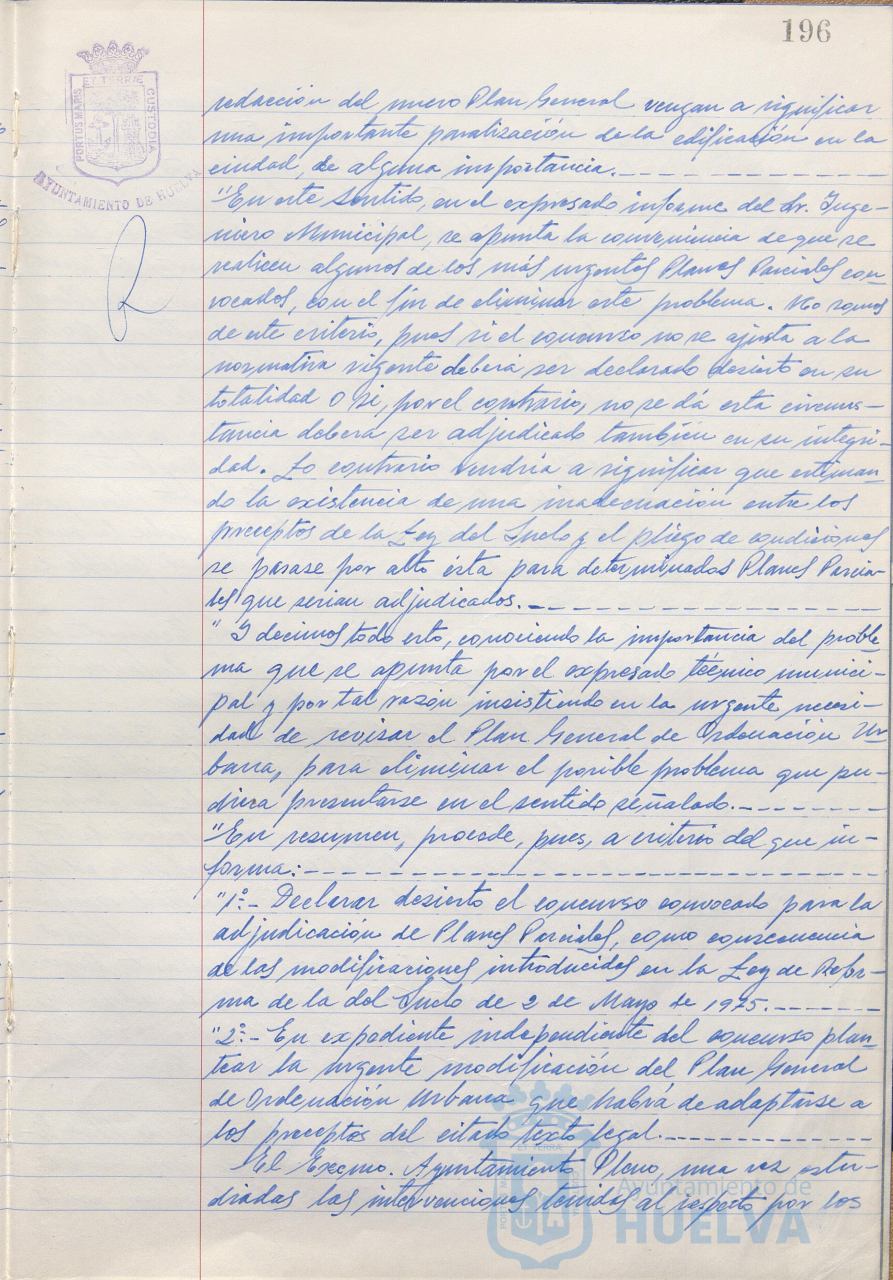 196
PORTUS MARIS
ET TERRÆ
CUSTODIA
AYUNTAMIENTO DE HUELVA
redacción del nuevo Plan General vengan a significar
una importante paralización de la edificación en la
ciudad, de alguna importancia.
"En este sentido, en el expresado informe del Sr. Inge-
niero Municipal, se apunta la conveniencia de que se
realicen algunos de los más urgentes Planes Parciales con-
vocados, con el fin de eliminar este problema. No somos
de este criterio, pues si el concurso no se ajusta a la
normativa vigente deberá ser declarado desierto en su
totalidad o si, por el contrario, no se dá esta circuns-
tancia deberá ser adjudicado también en su integri-
dad. Lo contrario vendría a significar que estiman-
do la existencia de una inadecuación entre los
preceptos de la Ley del Suelo y el pliego de condiciones
se pasase por alto ésta para determinados Planes Parcia-
les que serian adjudicados.
"Y decimos todo esto, conociendo la importancia del proble-
ma que se apunta por el expresado técnico munici-
pal y por tal razón insistiendo en la urgente necesi-
dad de revisar el Plan General de Ordenación Ur-
bana, para eliminar el posible problema que pu-
diera presentarse en el sentido señalado.
"En resumen, procede, pues, a criterio del que in-
forma:
"1º.- Declarar desierto el concurso convocado para la
adjudicación de Planes Parciales, como consecuencia
de las modificaciones introducidas en la Ley de Refor-
ma de la del Suelo de 2 de Mayo de 1975.
"2º.- En expediente independiente del concurso plan-
tear la urgente modificación del Plan General
de Ordenación Urbana que habrá de adaptarse a
los preceptos del citado texto legal.
El Excmo. Ayuntamiento Pleno, una vez estu-
diadas las intervenciones tenidas al respecto por los
Ayuntamiento de
HUELVA